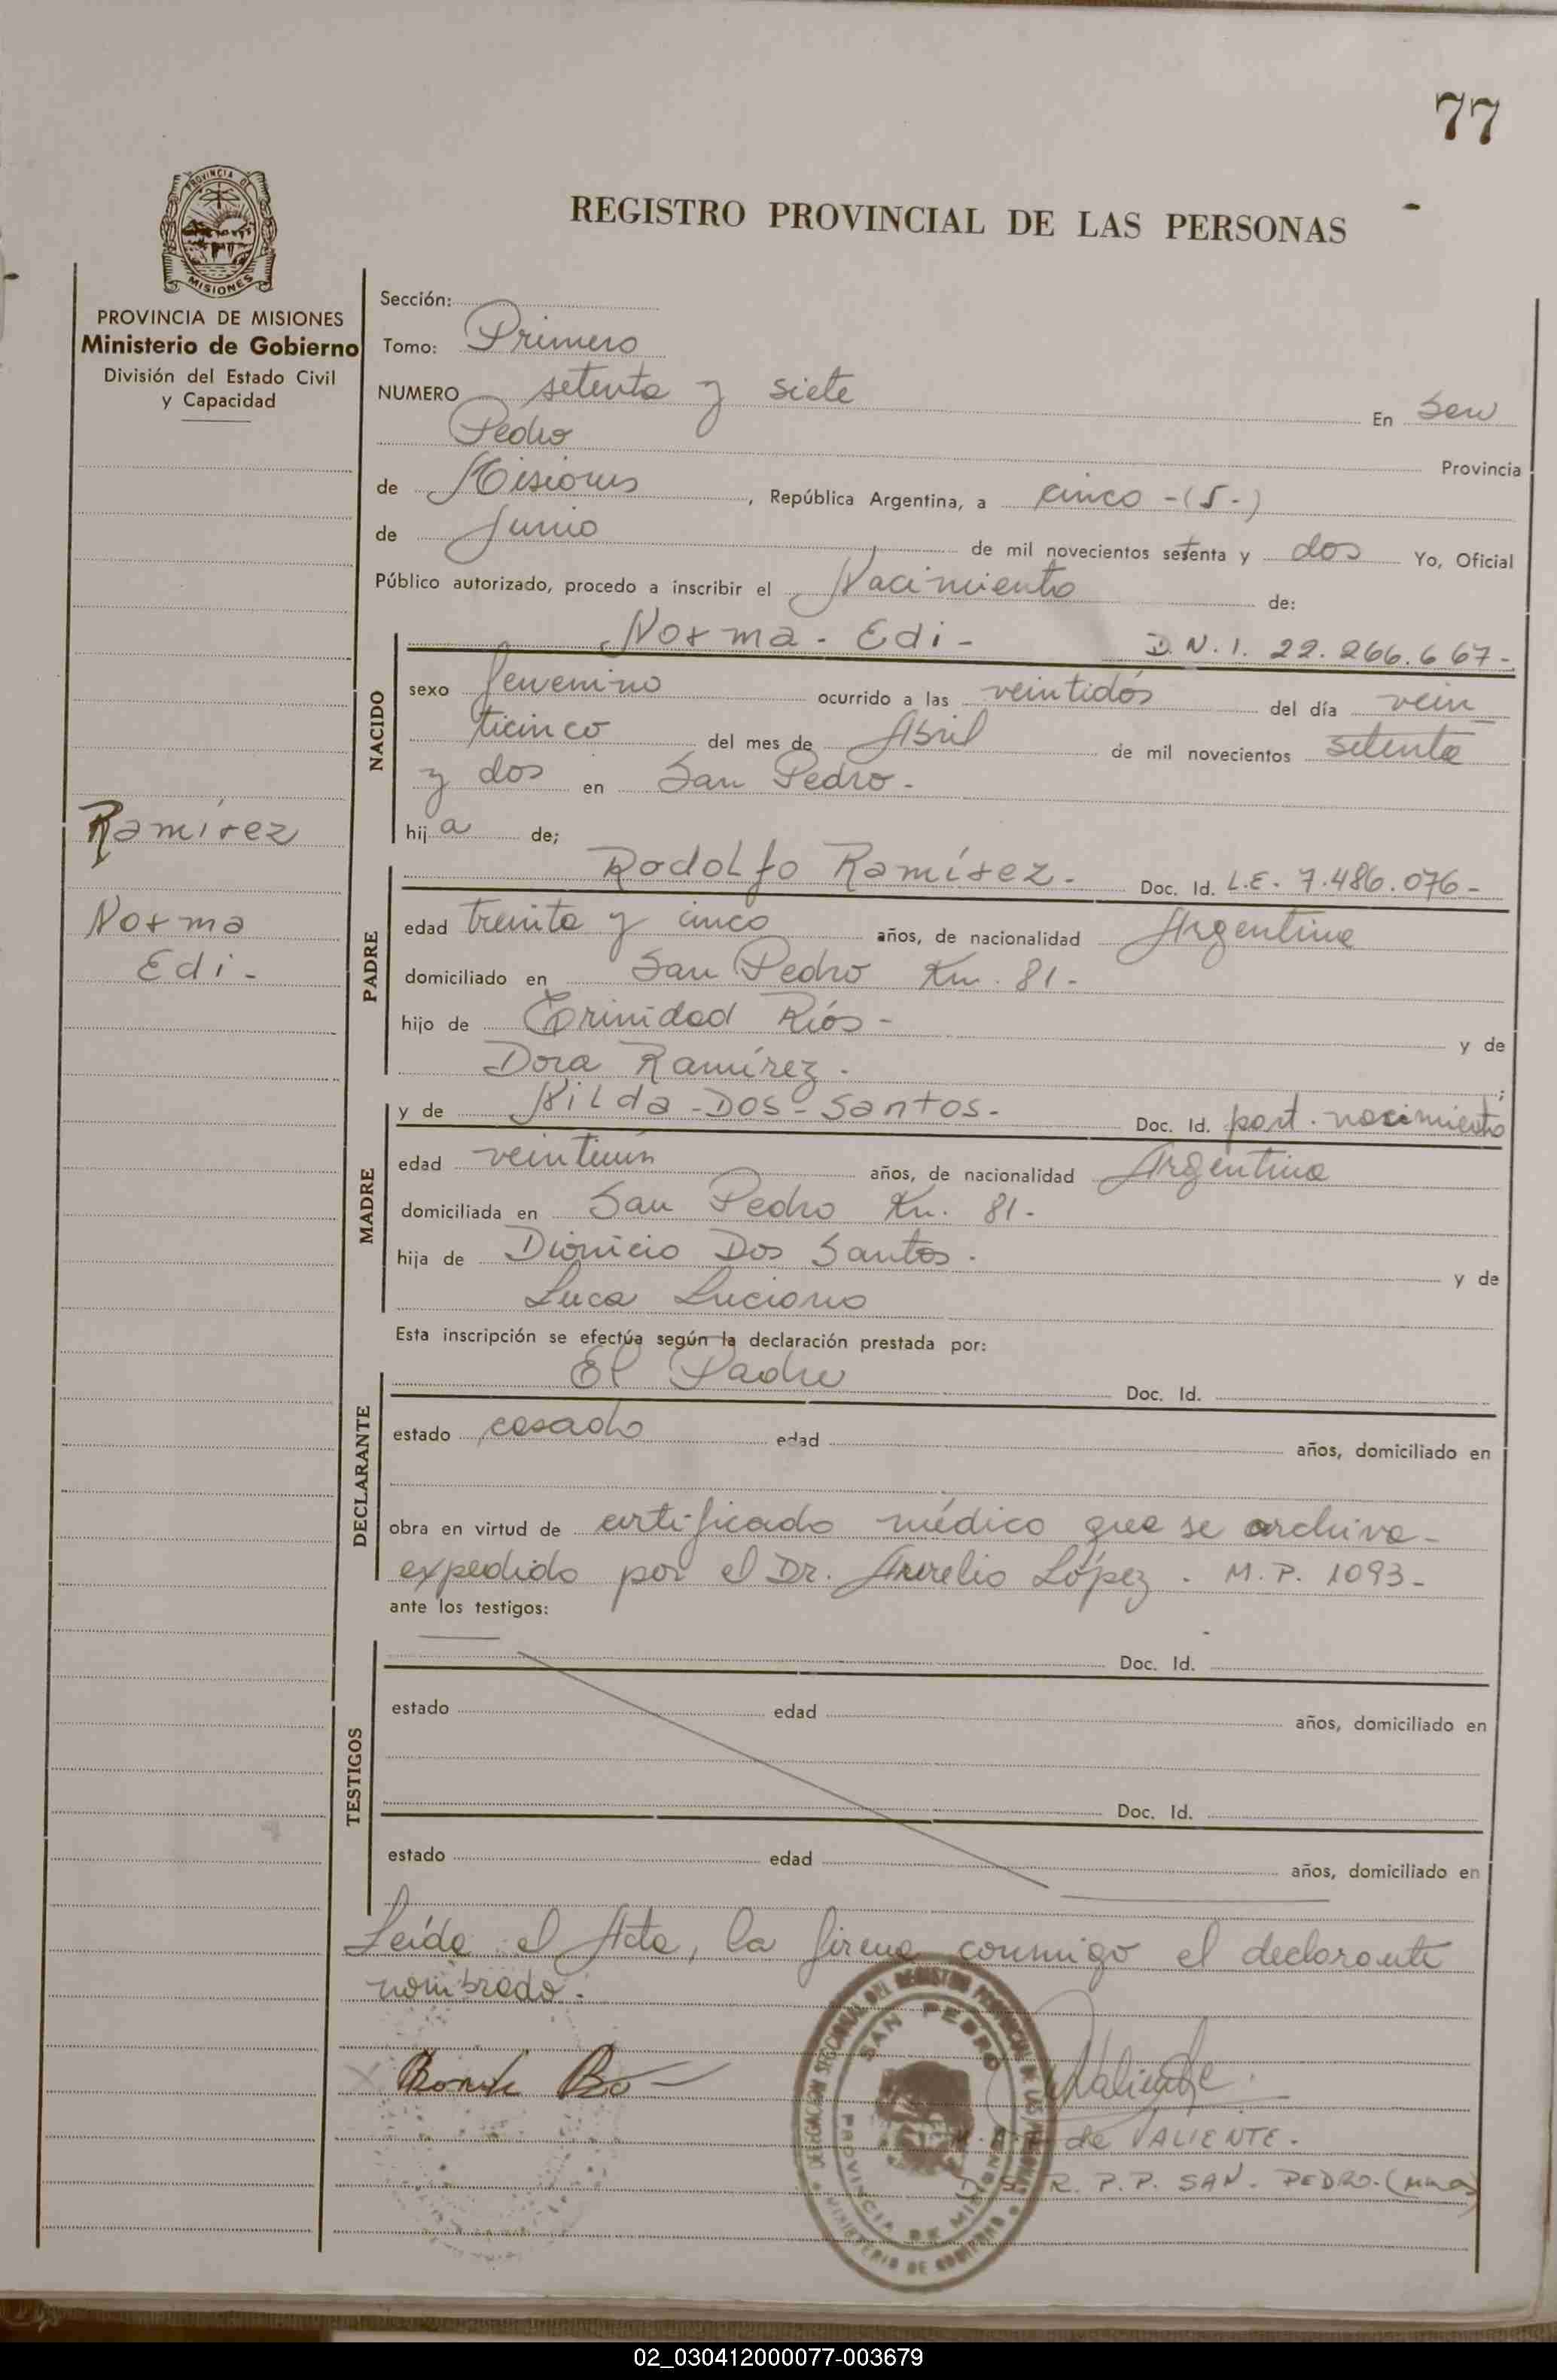 77
PROVINCIA DE MISIONES
REGISTRO PROVINCIAL DE LAS PERSONAS
PROVINCIA DE MISIONES
Ministerio de Gobierno
División del Estado Civil
y Capacidad
Sección:
Tomo: Primero
NUMERO setenta y siete En San
Pedro Provincia
de Misiones, República Argentina, a cinco -(5-)
de Junio de mil novecientos setenta y dos Yo, Oficial
Público autorizado, procedo a inscribir el Nacimiento de:
NACIDO
Norma - Edi - D.N.I. 22.266.667-
sexo femenino ocurrido a las veintidós del día vein
ticinco del mes de Abril de mil novecientos setenta
y dos en San Pedro -
hija de;
Ramírez
Norma
Edi -
PADRE
Rodolfo Ramírez - Doc. Id. L.E. 7.486.076-
edad treinta y cinco años, de nacionalidad Argentina
domiciliado en San Pedro Km. 81 -
hijo de Trinidad Ríos - y de
Dora Ramírez -;
MADRE
y de Nilda - Dos - Santos - Doc. Id. part. nacimiento
edad veintiún años, de nacionalidad Argentina
domiciliada en San Pedro Km. 81 -
hija de Dionicio Dos Santos - y de
Luca Luciano
Esta inscripción se efectúa según la declaración prestada por:
DECLARANTE
El Padre Doc. Id.
estado casado edad años, domiciliado en
obra en virtud de certificado médico que se archiva -
expedido por el Dr. Aurelio López - M.P. 1093-
ante los testigos:
TESTIGOS
Doc. Id.
estado edad años, domiciliado en
Doc. Id.
estado edad años, domiciliado en
Leída el Acta, la firma conmigo el declarante
nombrado.
Valiente
de VALIENTE -
R. P. P. SAN - PEDRO - (Mnes)
DELEGACION SECCIONAL DEL REGISTRO PROVINCIAL DE LAS PERSONAS
SAN PEDRO
PROVINCIA DE MISIONES
MINISTERIO DE GOBIERNO
02_030412000077-003679